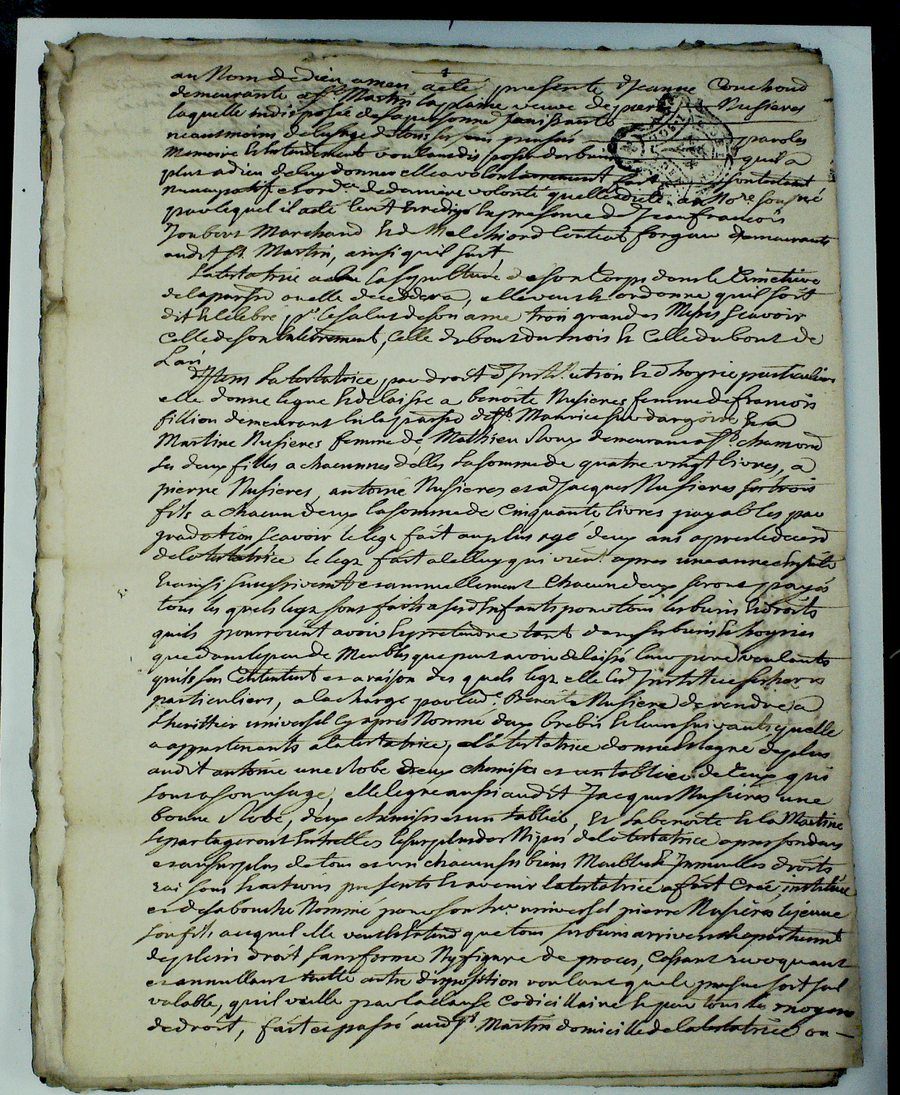 au Nom de dieu amen a esté presente Jeanne Couchoud
demeurante a St. Martin la plaine veuve de pierre Nusieres
laquelle indisposée de sa personne jouissante
neantmoins de l'usage de tous ses sens parolles
Memoire Et Entendement voulant disposer des biens qu'il a
plu a dieu de luy donner elle a volontairement fait son testament
nuncupatif et ord.re de derniere volonté quelle a dicté au No.re soussigné
par lequel il a esté Ecrit Et redigé En presence de Jean francois
Joubert Marchand Et de Melchiord forgeur demeurants
audit St. Martin, ainsi quil suit
La testatrice a elu la sepulture de son Corps dans le Cimetiere
de la paroisse ou elle decedera, elle veut Et ordonne quil soit
dit Et celebré, pr. le salut de son ame trois grandes Messes scavoir
Celle de son Enterrement, Celle du bout du mois Et Celle du bout de
L'an
Item La testatrice, par droit d'Institution Et d'hoyrie particuliere
elle donne legue Et delaisse a benoite Nusieres femme de francois
fillion demeurant En la paroisse de St. Maurice sur dargoire Et a
Martine Nusieres femme de Mathieu Roux demeurant a St. chamond
ses deux filles a chacunnes d'elles la somme de quatre vingt livres, a
pierre Nusieres, antoine Nusieres et a Jacques Nusieres ses trois
fils a chacun d'eux la somme de Cinquante livres payables par
gradation scavoir le legs fait au plus agé deux ans apres le deced
de la testatrice le legs fait a celluy qui vient apres une année ensuite
Et ainsi successivemt et annuellement chacun d'eux seront payés
tous les quels legs sont faits a ses d. Enfants pour tous les biens Et droits
quils pourroient avoir Et pretendre tant dans ses biens Et hoyries
que dans le peu de Meubles que peut avoir delaissé leur pere voulants
quils s'en Contentent et a raison des quels legs elle les Institue ses her.rs
particuliers, a la charge par la d.e Benoite Nusieres de rendre a
L'heritier universel Cy apres Nommé deux brebis Et leurs suivants quelle
a appartenants a la testatrice, La testatrice donne Et legue de plus
audit antoine une Robe deux chemises et un tablier de ceux qui
sont a son usage, elle legue aussi audit Jacques Nusieres une
bonne Robe, deux chemises et un tablier, Et la benoite Et la Martine
se partageront Entr'elles Le surplus des Nipes de la testatrice apres son deces
et au surplus de tous et uns chacuns ses biens Meubles Et Immeubles droits
raisons Et actions presents Et avenir la testatrice a fait Créé, institué
et de sa bouche Nommé pour son her. universel pierre Nusieres le jeune
son fils auquel elle veut Et entend que tous ses biens arrivent Et apartiennent
de plein droit sans forme Ny figure de proces, Cassant revoquant
et annullant toutte autre disposition voulant que le presente soit seul
valable, quil vaille par la clause Codicillaire Et par tous les moyens
de droit, fait et passé aud. St. Martin domicille de la testatrice ou